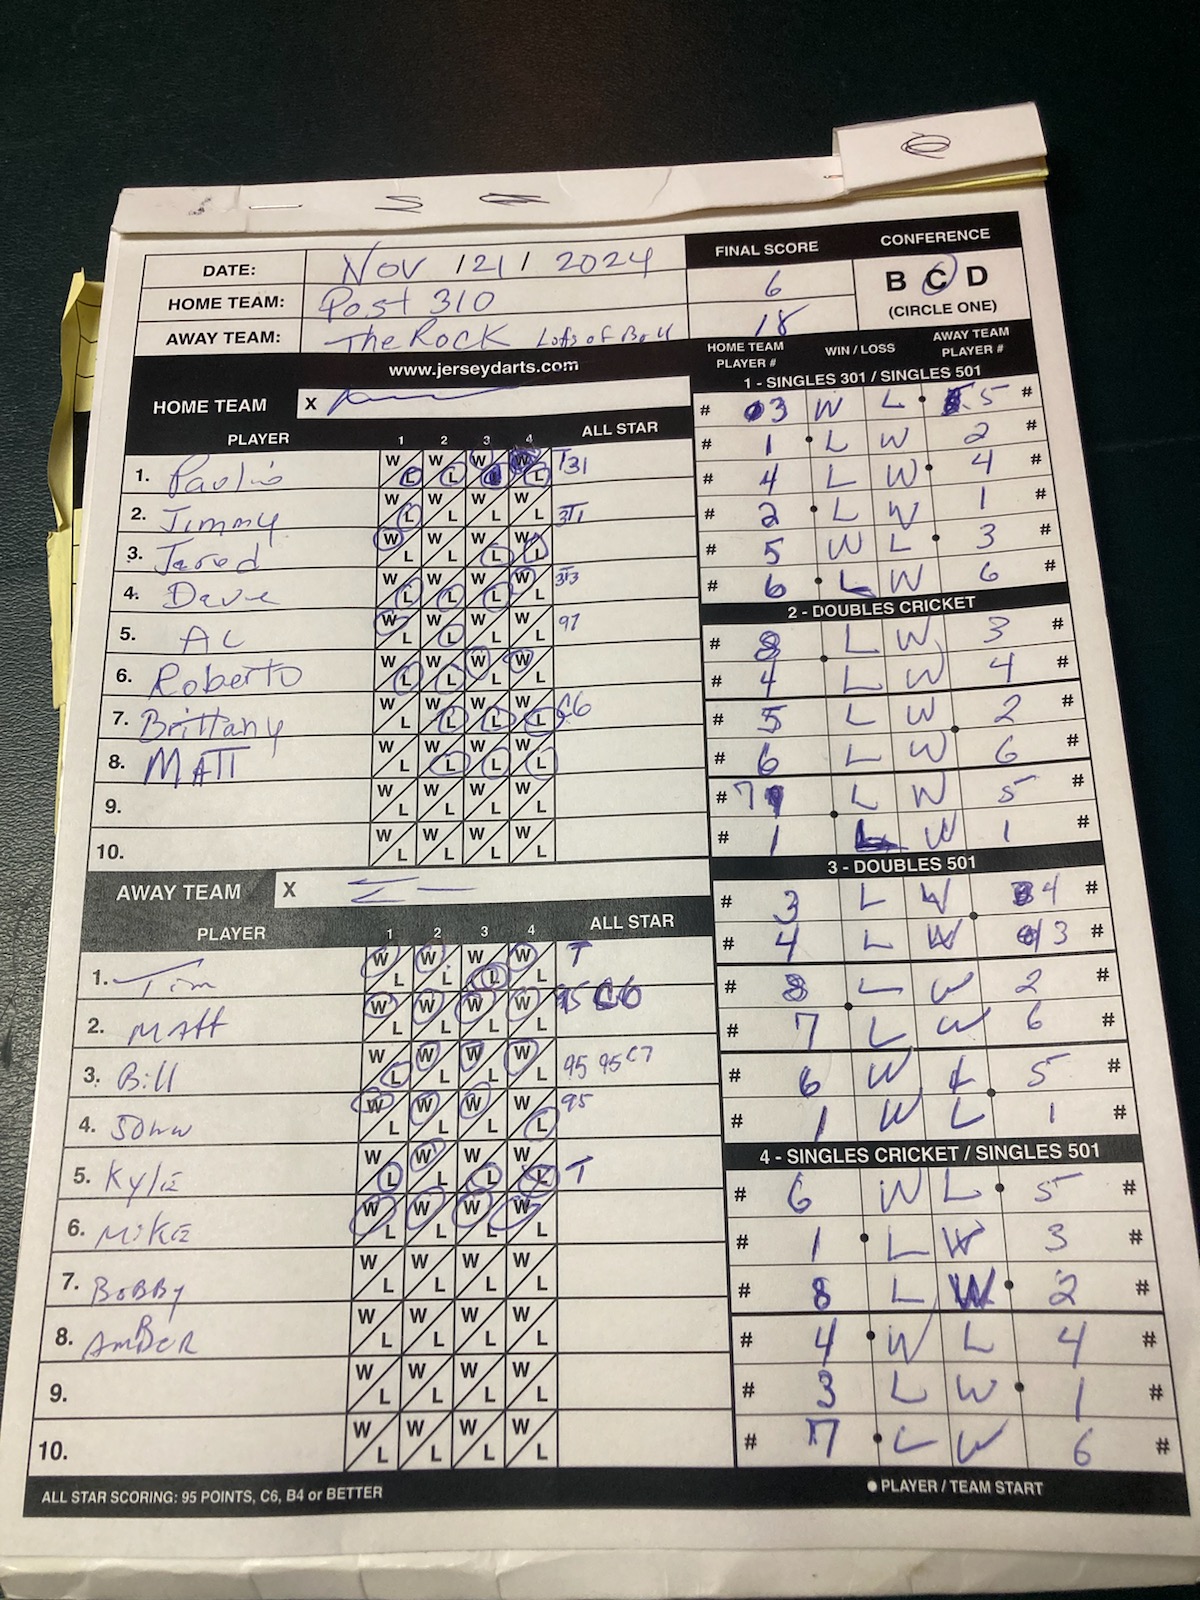 DATE: Nov 121 2024
HOME TEAM: Post 310
AWAY TEAM: The Rock Lots of Bull
FINAL SCORE
6
18
CONFERENCE
B C D
(CIRCLE ONE)
www.jerseydarts.com
HOME TEAM X
PLAYER 1 2 3 4 ALL STAR
1. Paulis W L W L W L W L T31
2. Jimmy W L W L W L W L 3T1
3. Jared W L W L W L W L
4. Dave W L W L W L W L 3T3
5. AL W L W L W L W L 97
6. Roberto W L W L W L W L
7. Brittany W L W L W L W L C6
8. MATT W L W L W L W L
9. W L W L W L W L
10. W L W L W L W L
AWAY TEAM X
PLAYER 1 2 3 4 ALL STAR
1. Tim W L W L W L W L T
2. MAtt W L W L W L W L 95 C6
3. Bill W L W L W L W L 95 95 C7
4. W L W L W L W L 95
5. KyLE W L W L W L W L T
6. MiKE W L W L W L W L
7. BoBBy W L W L W L W L
8. AmBER W L W L W L W L
9. W L W L W L W L
10. W L W L W L W L
ALL STAR SCORING: 95 POINTS, C6, B4 or BETTER
HOME TEAM PLAYER # WIN / LOSS AWAY TEAM PLAYER #
1 - SINGLES 301 / SINGLES 501
# 3 W L 5 #
# 1 L W 2 #
# 4 L W 4 #
# 2 L W 1 #
# 5 W L 3 #
# 6 L W 6 #
2 - DOUBLES CRICKET
# 8 L W 3 #
# 4 L W 4 #
# 5 L W 2 #
# 6 L W 6 #
# 7 L W 5 #
# 1 L W 1 #
3 - DOUBLES 501
# 3 L W 4 #
# 4 L W 3 #
# 8 L W 2 #
# 7 L W 6 #
# 6 W L 5 #
# 1 W L 1 #
4 - SINGLES CRICKET / SINGLES 501
# 6 W L 5 #
# 1 L W 3 #
# 8 L W 2 #
# 4 W L 4 #
# 3 L W 1 #
# 7 L W 6 #
PLAYER / TEAM START